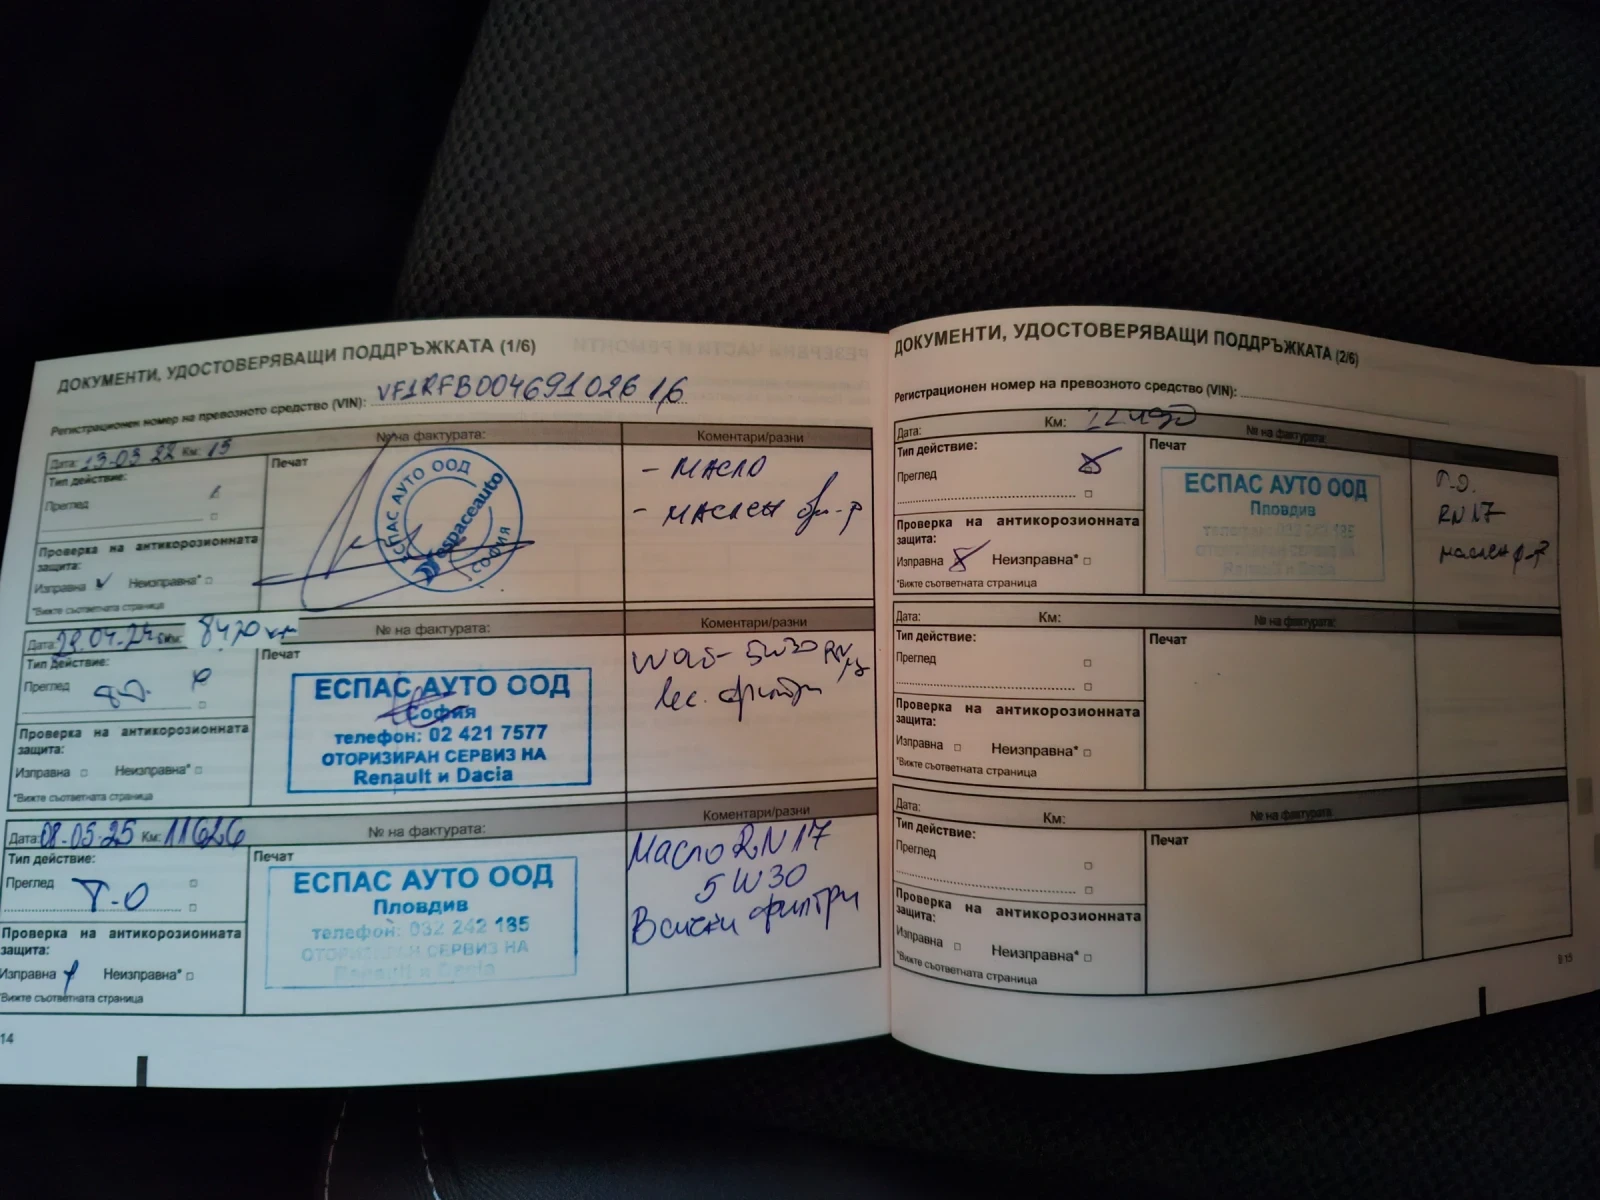 ДОКУМЕНТИ, УДОСТОВЕРЯВАЩИ ПОДДРЪЖКАТА (1/6)
Регистрационен номер на превозното средство (VIN): VF1RFB00469102616
Дата: 13-03 22 Км: 15
№ на фактурата:
Коментари/разни
Тип действие:
Преглед
Печат
ЕСПАС АУТО ООД
espaceauto
СОФИЯ
- масло
- маслен ф-р
Проверка на антикорозионната защита:
Изправна
Неизправна*
*Вижте съответната страница
Дата: Км: 8470 км
№ на фактурата:
Коментари/разни
Тип действие:
Преглед
Печат
ЕСПАС АУТО ООД
София
телефон: 02 421 7577
ОТОРИЗИРАН СЕРВИЗ НА
Renault и Dacia
5W30 RN
филтри
Проверка на антикорозионната защита:
Изправна
Неизправна*
*Вижте съответната страница
Дата: 08-05-25 Км: 11626
№ на фактурата:
Коментари/разни
Тип действие:
Преглед
Т-О
Печат
ЕСПАС АУТО ООД
Пловдив
телефон: 032 242 185
ОТОРИЗИРАН СЕРВИЗ НА
Renault и Dacia
Масло RN17
5W30
Всички филтри
Проверка на антикорозионната защита:
Изправна
Неизправна*
*Вижте съответната страница
14
ДОКУМЕНТИ, УДОСТОВЕРЯВАЩИ ПОДДРЪЖКАТА (2/6)
Регистрационен номер на превозното средство (VIN):
Дата:
Км:
№ на фактурата:
Тип действие:
Преглед
Печат
ЕСПАС АУТО ООД
Пловдив
телефон: 032 242 185
ОТОРИЗИРАН СЕРВИЗ НА
Renault и Dacia
RN17
маслен ф-р
Проверка на антикорозионната защита:
Изправна
Неизправна*
*Вижте съответната страница
Дата:
Км:
№ на фактурата:
Тип действие:
Преглед
Печат
Проверка на антикорозионната защита:
Изправна
Неизправна*
*Вижте съответната страница
Дата:
Км:
№ на фактурата:
Тип действие:
Преглед
Печат
Проверка на антикорозионната защита:
Изправна
Неизправна*
*Вижте съответната страница